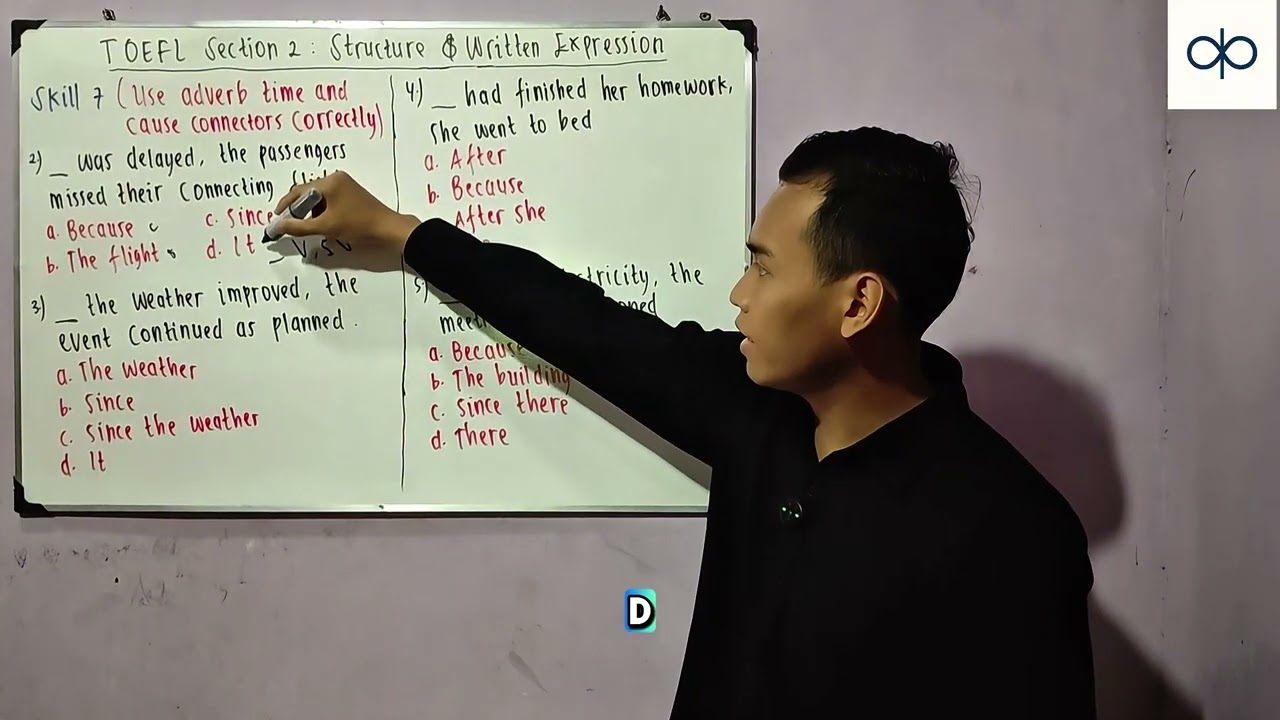 TOEFL Section 2 : Structure & Written Expression
Skill 7 (Use adverb time and
cause connectors correctly)
2) _ was delayed, the passengers
missed their connecting
a. Because c
b. The flight s
c. Since
d. It
_ V, S V
3) _ the weather improved, the
event continued as planned.
a. The weather
b. Since
c. Since the weather
d. It
4) _ had finished her homework,
she went to bed
a. After
b. Because
After she
5)
the
a. Because
b. The building
c. Since there
d. There
D